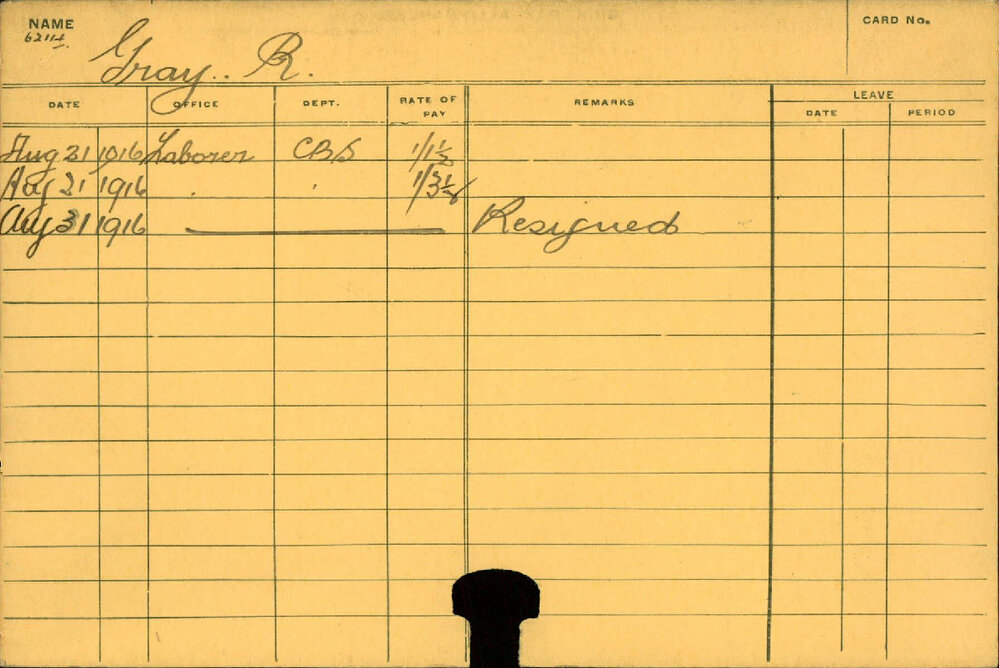 NAME CARD No.
62114
Gray.. R.
DATE OFFICE DEPT. RATE OF PAY REMARKS LEAVE
DATE PERIOD
Aug 21 1916 Laborer CBS 1/1½
Aug 21 1916 . . 1/3½
Aug 31 1916 Resigned